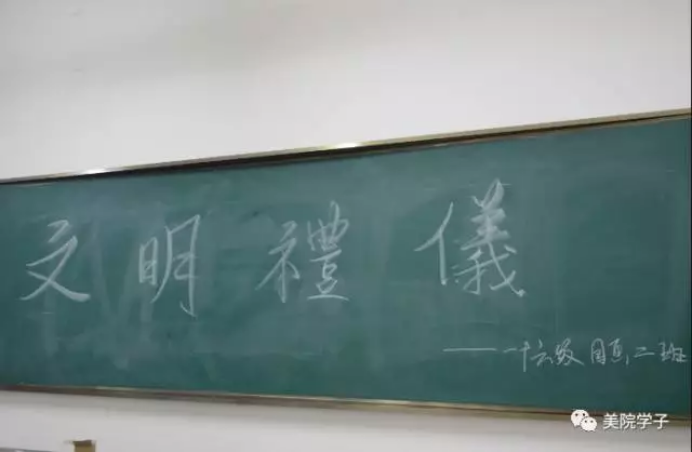 文明禮儀
——十六级 二班
美院学子